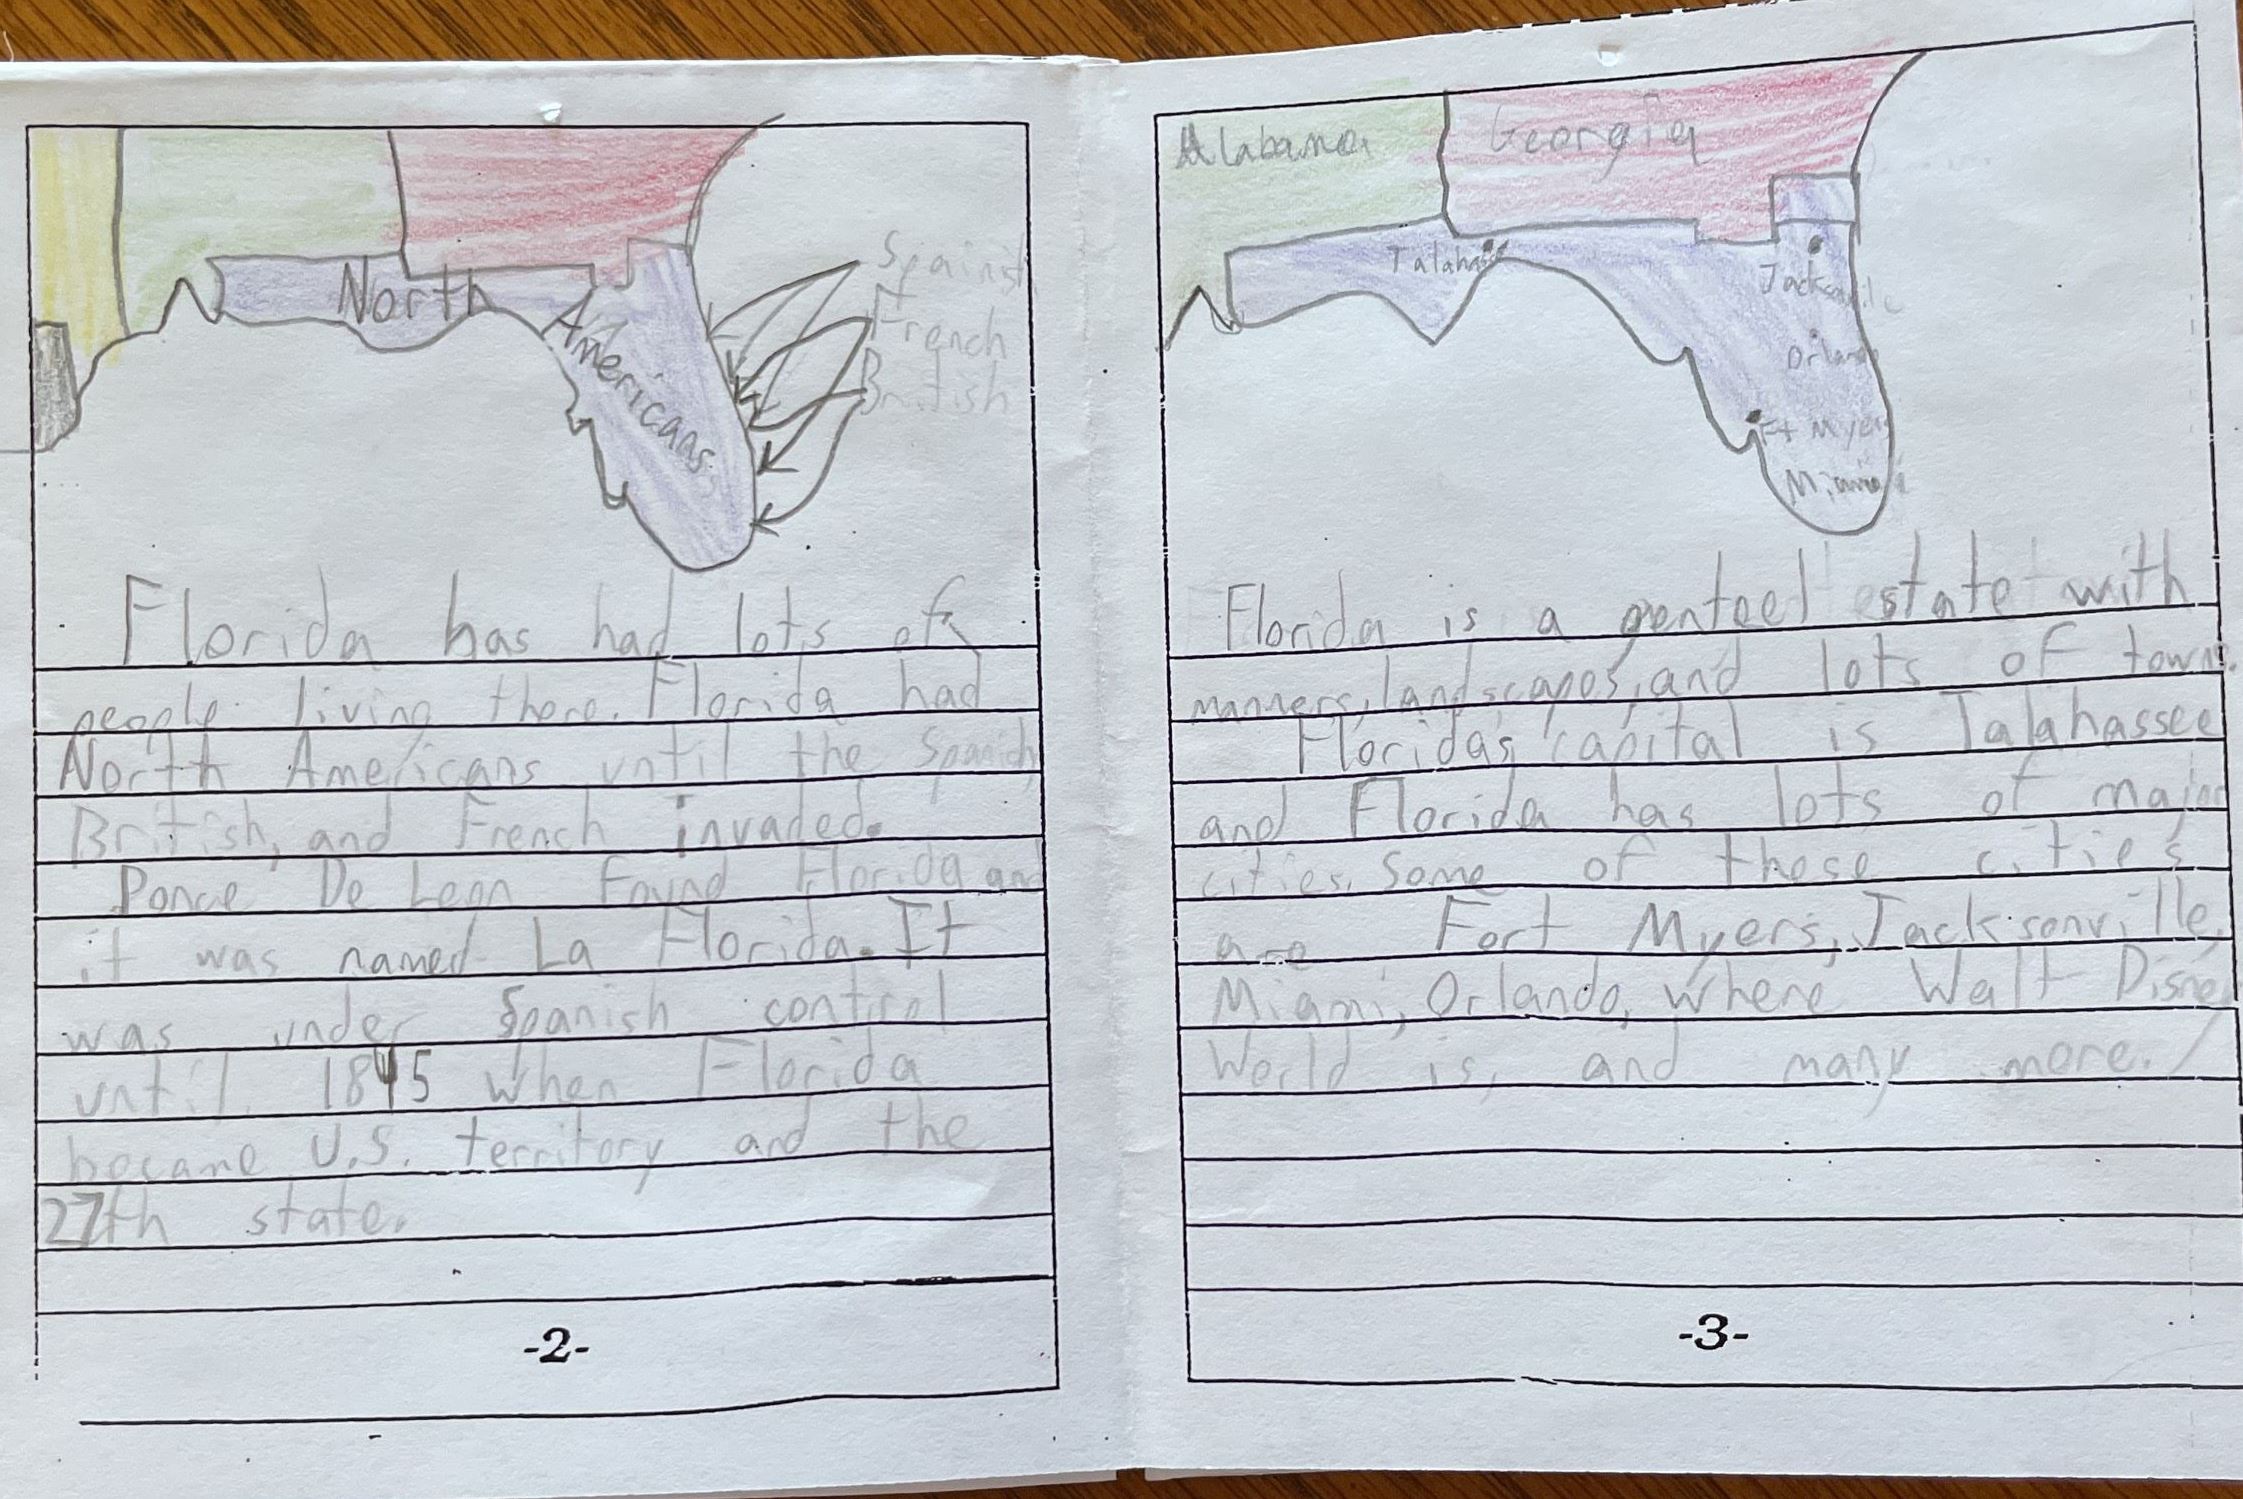 North
Americans
Spainish
French
British
Florida has had lots of
people living there. Florida had
North Americans until the Spanish,
British, and French invaded.
Ponce De Leon Found Florida and
it was named La Florida. It
was under Spanish control
until 1845 when Florida
became U.S. territory and the
27th state.
-2-
Alabama Georgia
Talahassee
Jacksonville
Orlando
Ft Myers
Miami
Florida is a genteel state with
manners, landscapes, and lots of towns.
Floridas capital is Talahassee
and Florida has lots of major
cities. Some of these cities
are Fort Myers, Jacksonville,
Miami, Orlando, where Walt Disney
World is, and many more.
-3-